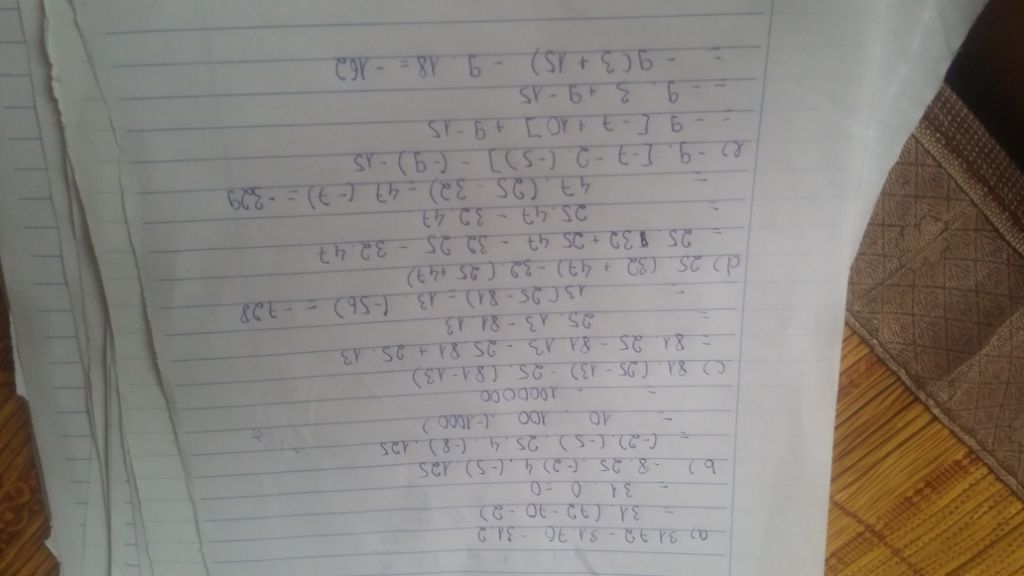 a) 31.72 - 31.70 - 31.2
= 31. (72 - 70 - 2)
= 31 . 0 = 0
b) - 8. 25. (-2) 4. (-5) 125
= (-2). (-5). 25. 4. (-8). 125
= 10 . 100 . (-1000)
= - 1000000
c) 81. (25 - 13) - 25. (81 - 13)
= 81. 25 - 81. 13 - 25. 81 + 25. 13
= 25. 13 - 81. 13
= 13 (25 - 81) = 13. (-56) = - 728
d) 25 (32 + 47) - 32 (25 + 47)
= 25. 32 + 25. 47 - 32. 25 - 32. 47
= 25. 47 - 32. 47
= 47. (25 - 32) = 47 (-7) = - 329
e) - 9. [-7 - 2. (-5)] - (-9) - 15
= - 9 [-7 + 10] + 9 - 15
= - 9 . 3 + 9 - 15
= - 9 (3 + 15) - 9 . 18 = - 162